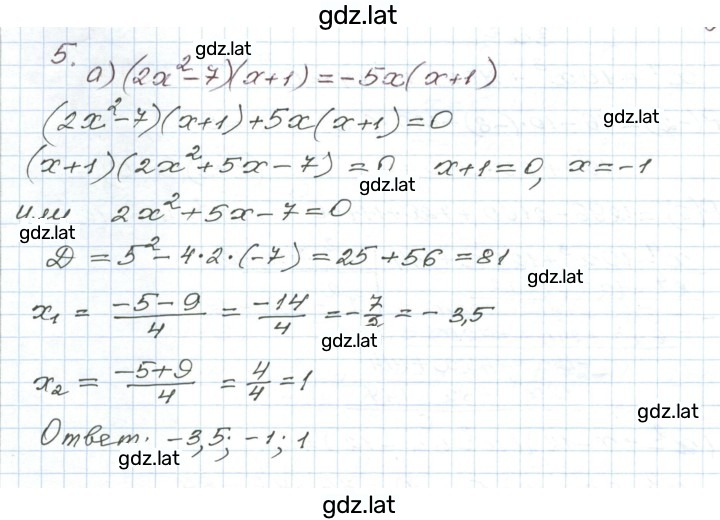 gdz.lat
5. gdz.lat
а) (2x²-7)(x+1) = -5x(x+1)
(2x²-7)(x+1)+5x(x+1)=0 gdz.lat
(x+1)(2x²+5x-7) = 0 x+1=0, x=-1
gdz.lat
или 2x²+5x-7=0
gdz.lat
D = 5²-4·2·(-7) = 25+56 = 81
gdz.lat
x₁ = (-5-9)/4 = -14/4 = -7/2 = -3,5
gdz.lat
x₂ = (-5+9)/4 = 4/4 = 1
gdz.lat
Ответ. -3,5; -1; 1
gdz.lat
gdz.lat